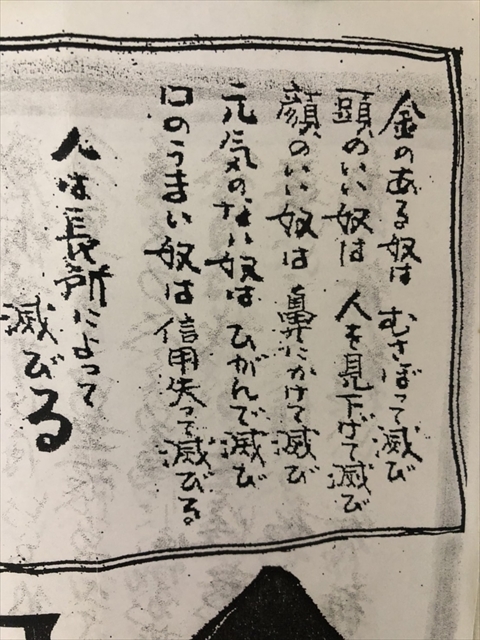 金のある奴は むさぼって滅び
頭のいい奴は 人を見下げて滅び
顔のいい奴は 鼻にかけて滅び
元気のない奴は ひがんで滅び
口のうまい奴は 信用失って滅びる。
人は長所によって
滅びる